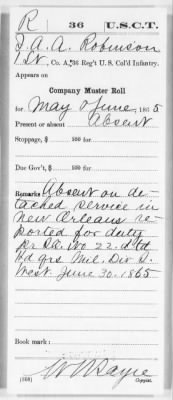 R 36 U.S.C.T.
J. A. A. Robinson
1 Lt, Co. A, 36 Reg't U. S. Col'd Infantry.
Appears on
Company Muster Roll
for May & June, 1865
Present or absent Absent
Stoppage, $ 100 for
Due Gov't, $ 100 for
Remarks Absent on de-
tached service in
New Orleans re-
ported for duty
Pr S.O. No 22. dtd
Hd qrs Mil. Div. S.
West. June 30. 1865
Book mark:
(358) Copyist.